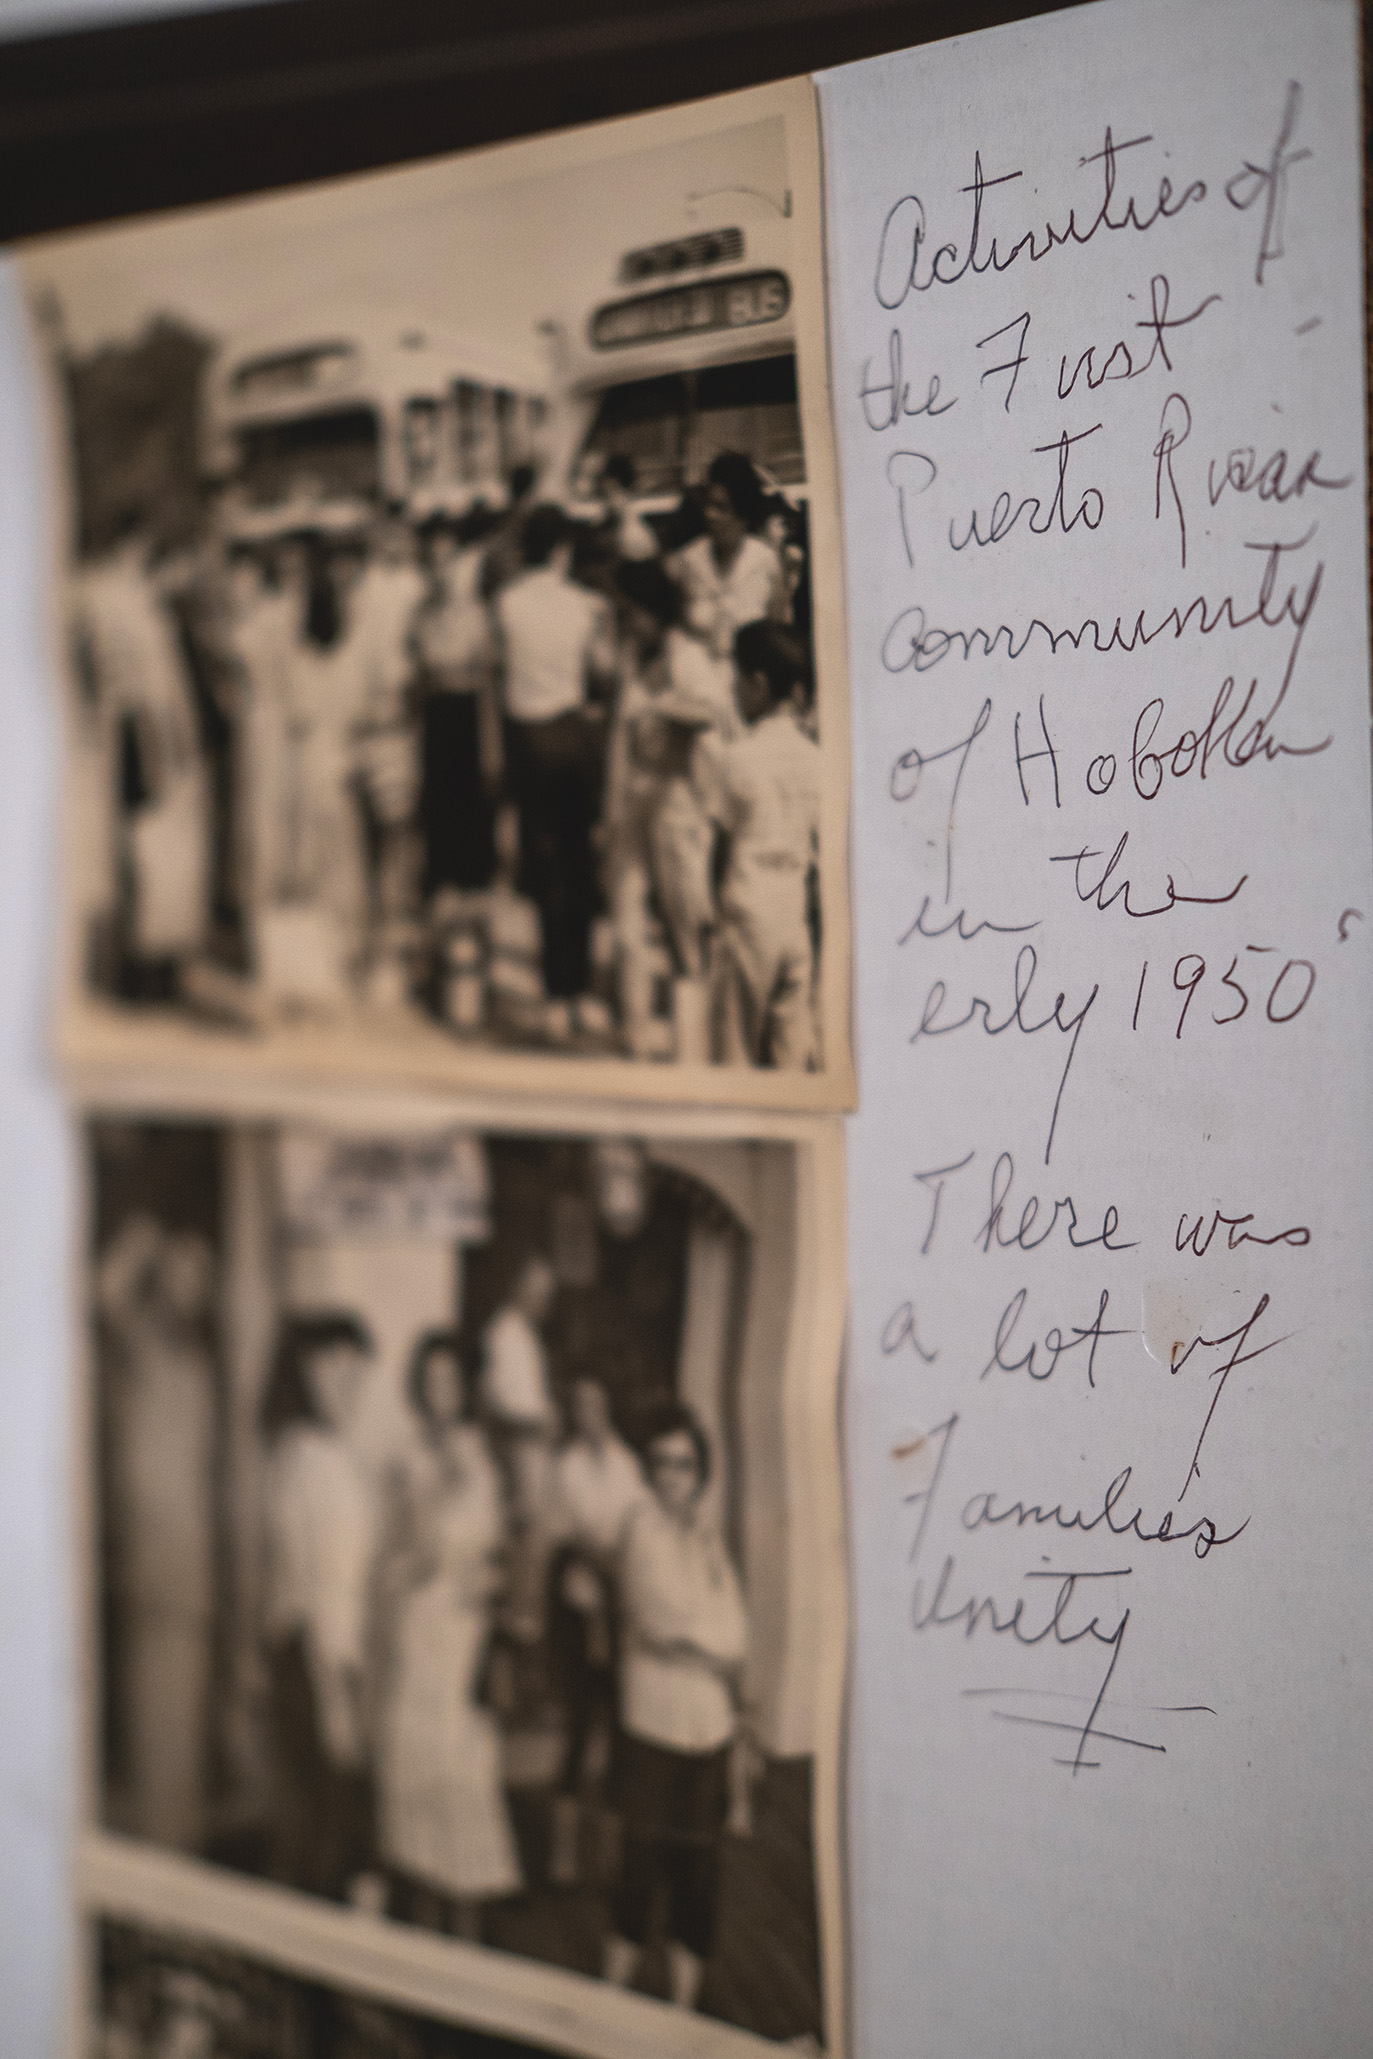 BUS
Activities of
the First
Puerto Rican
community
of Hoboken
in the
erly 1950's
There was
a lot of
Families
Unity